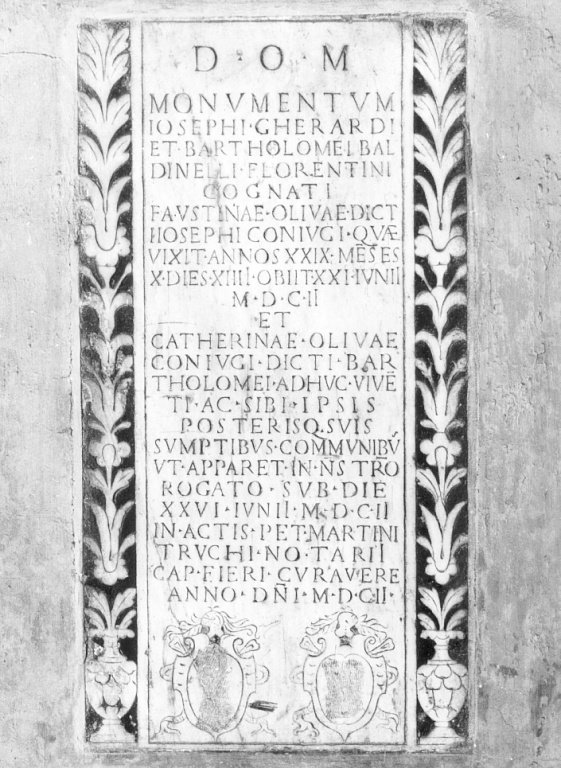 D · O · M
MONVMENTVM
IOSEPHI · GHERARDI
ET · BARTHOLOMEI BAL
DINELLI · FLORENTINI
COGNATI
FAVSTINAE · OLIVAE · DICT
IIOSEPHI CONIVGI · QVÆ
VIXIT · ANNOS XXIX · MĒSES
X · DIES · XIIII · OBIIT · XXI · IVNII
M · D · C · II
ET
CATHERINAE · OLIVAE
CONIVGI · DICTI · BAR
THOLOMEI · ADHVC · VIVĒ
TI · AC · SIBI · IPSIS
POSTERISQ · SVIS
SVMPTIBVS · COMMVNIBV̄
VT · APPARET · IN · ÑS TRO
ROGATO · SVB · DIE
XXVI · IVNII · M · D · C · II
IN · ACTIS · PET · MARTINI
TRVCHI · NO · TARII
CAP · FIERI · CVRAVERE
ANNO · DÑI · M · D · C · II ·